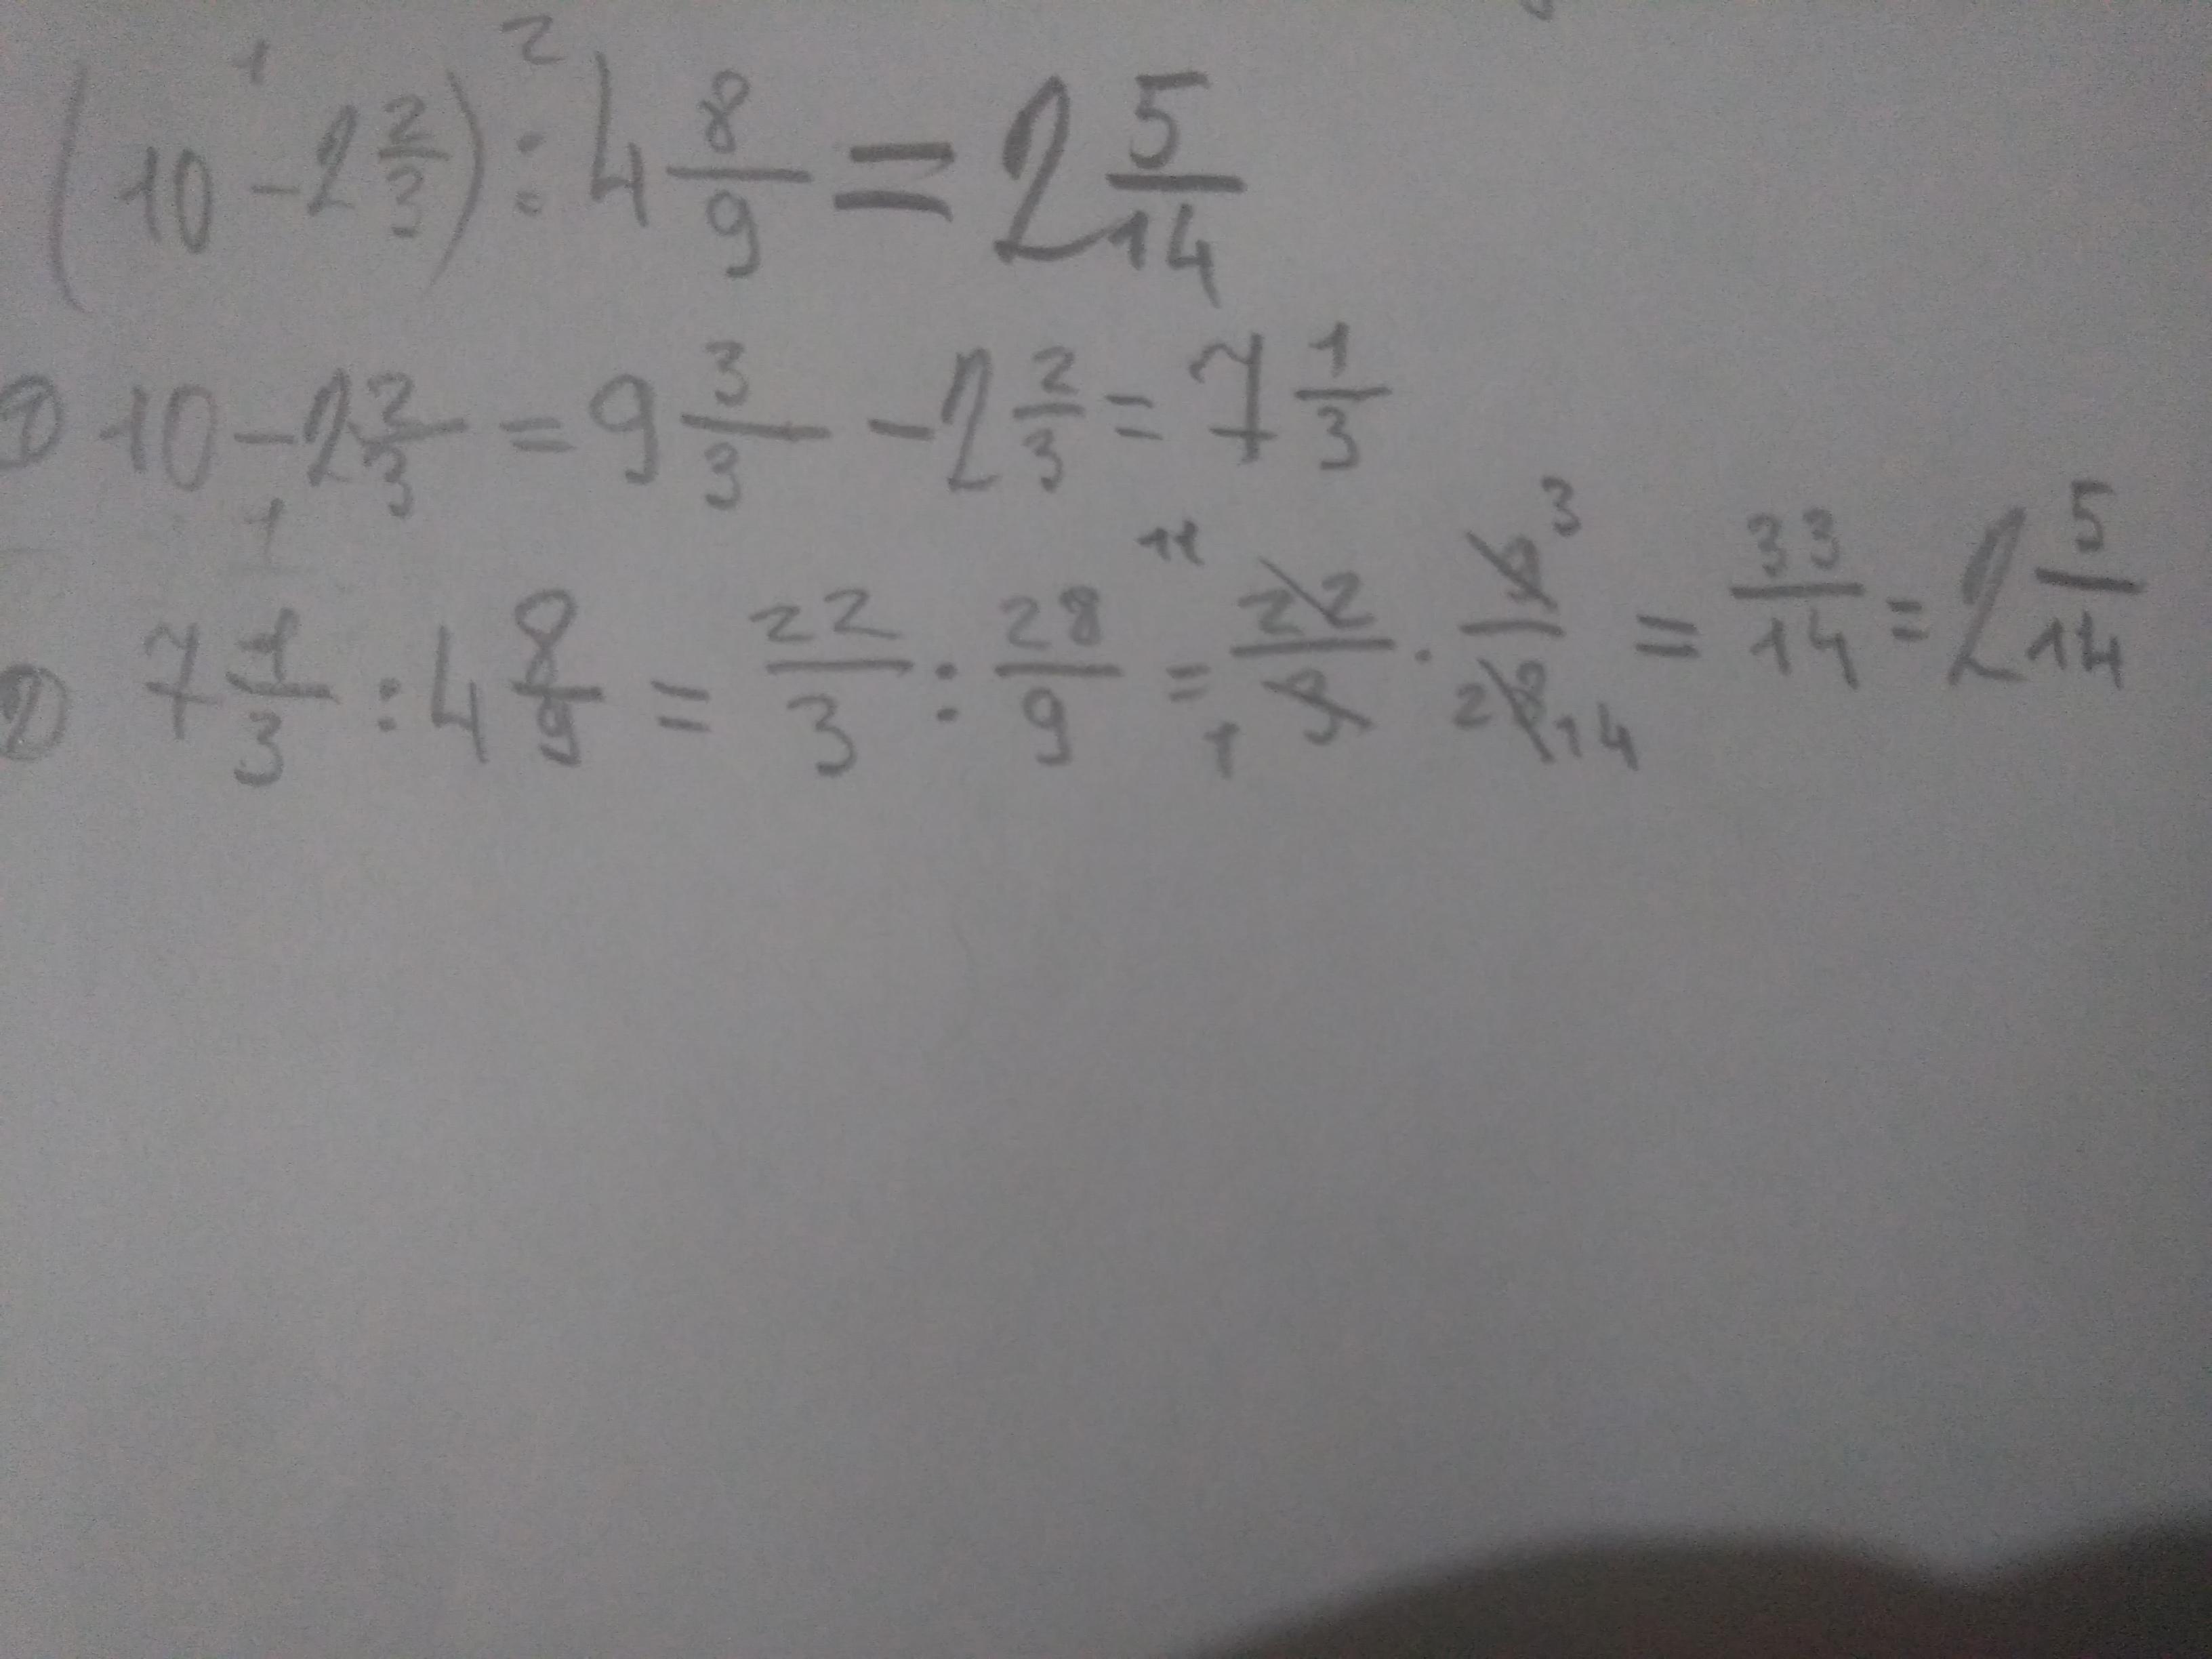 (10 - 2 2/3) : 4 8/9 = 2 5/14
1) 10 - 2 2/3 = 9 3/3 - 2 2/3 = 7 1/3
2) 7 1/3 : 4 8/9 = 22/3 : 28/9 = 22/3 · 9/28 = 33/14 = 2 5/14